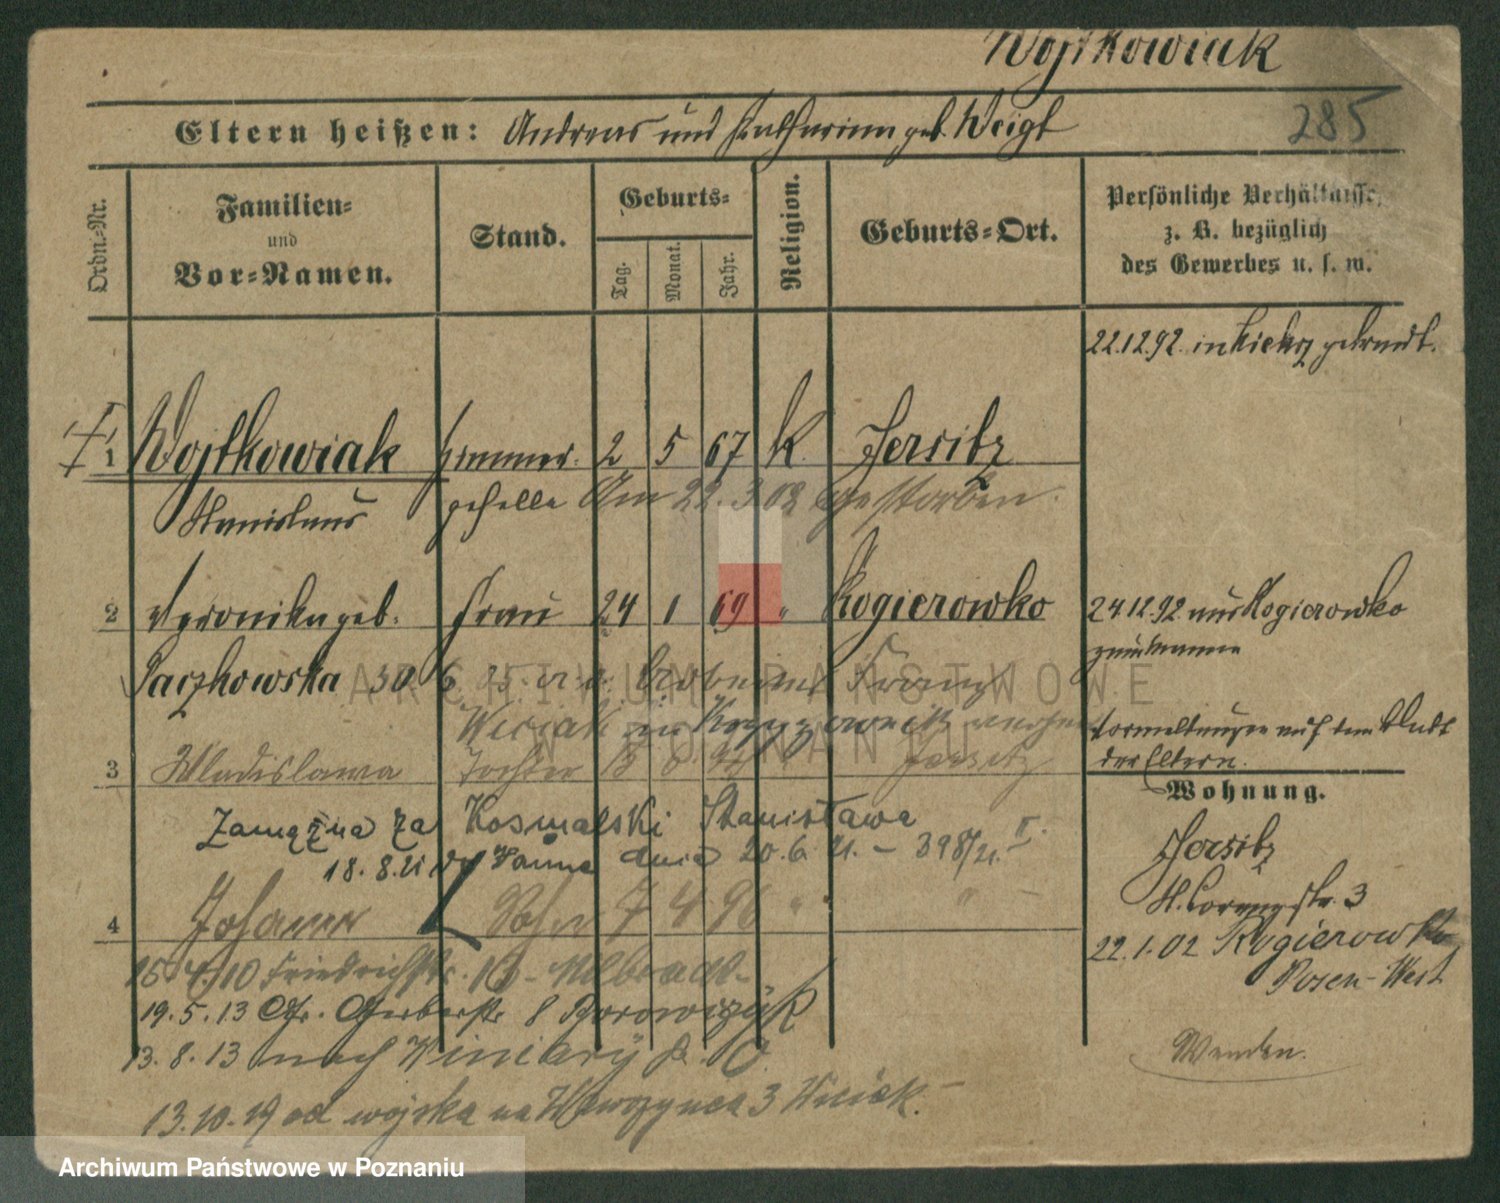 Wojtkowiak
285
Eltern heißen: Andreas und Katharina geb. Weigt
Ordn.-Nr.
Familien-
und
Vor-Namen.
Stand.
Geburts-
Tag.
Monat.
Jahr.
Religion.
Geburts-Ort.
Persönliche Verhältnisse,
z. B. bezüglich
des Gewerbes u. s. w.
22.12.92. in Kiekrz getraut.
1 Wojtkowiak Zimmer- 2 5 67 K. Jersitz
Stanislaus geselle Am 22.3.02 gestorben.
2 Veronika geb. Frau 24 1 69 " Rogierowko
24.12.92 aus Rogierowko
Paczkowska 30 6 05
Franz
Wesiak in
auf dem Blatt
der Eltern.
3 Wladislawa Tochter 18 6 94 Jersitz
Wohnung.
Zamężna za Kosmalski Stanisława
18.8.21 dnia 20.6.21. - 398/21. II.
Jersitz
str. 3
4 Johann Sohn 7 4 96 " "
22.1.02 Rogierowko
Posen-West
15.4.10 Friedrichstr. 10 -
19.5.13 Gr. Gerberstr. 8 Borowczyk
13.8.13 nach Winiary
Wenden.
13.10.19 od wojska na Wawrzyńca 3
ARCHIWUM PAŃSTWOWE
W POZNANIU
Archiwum Państwowe w Poznaniu